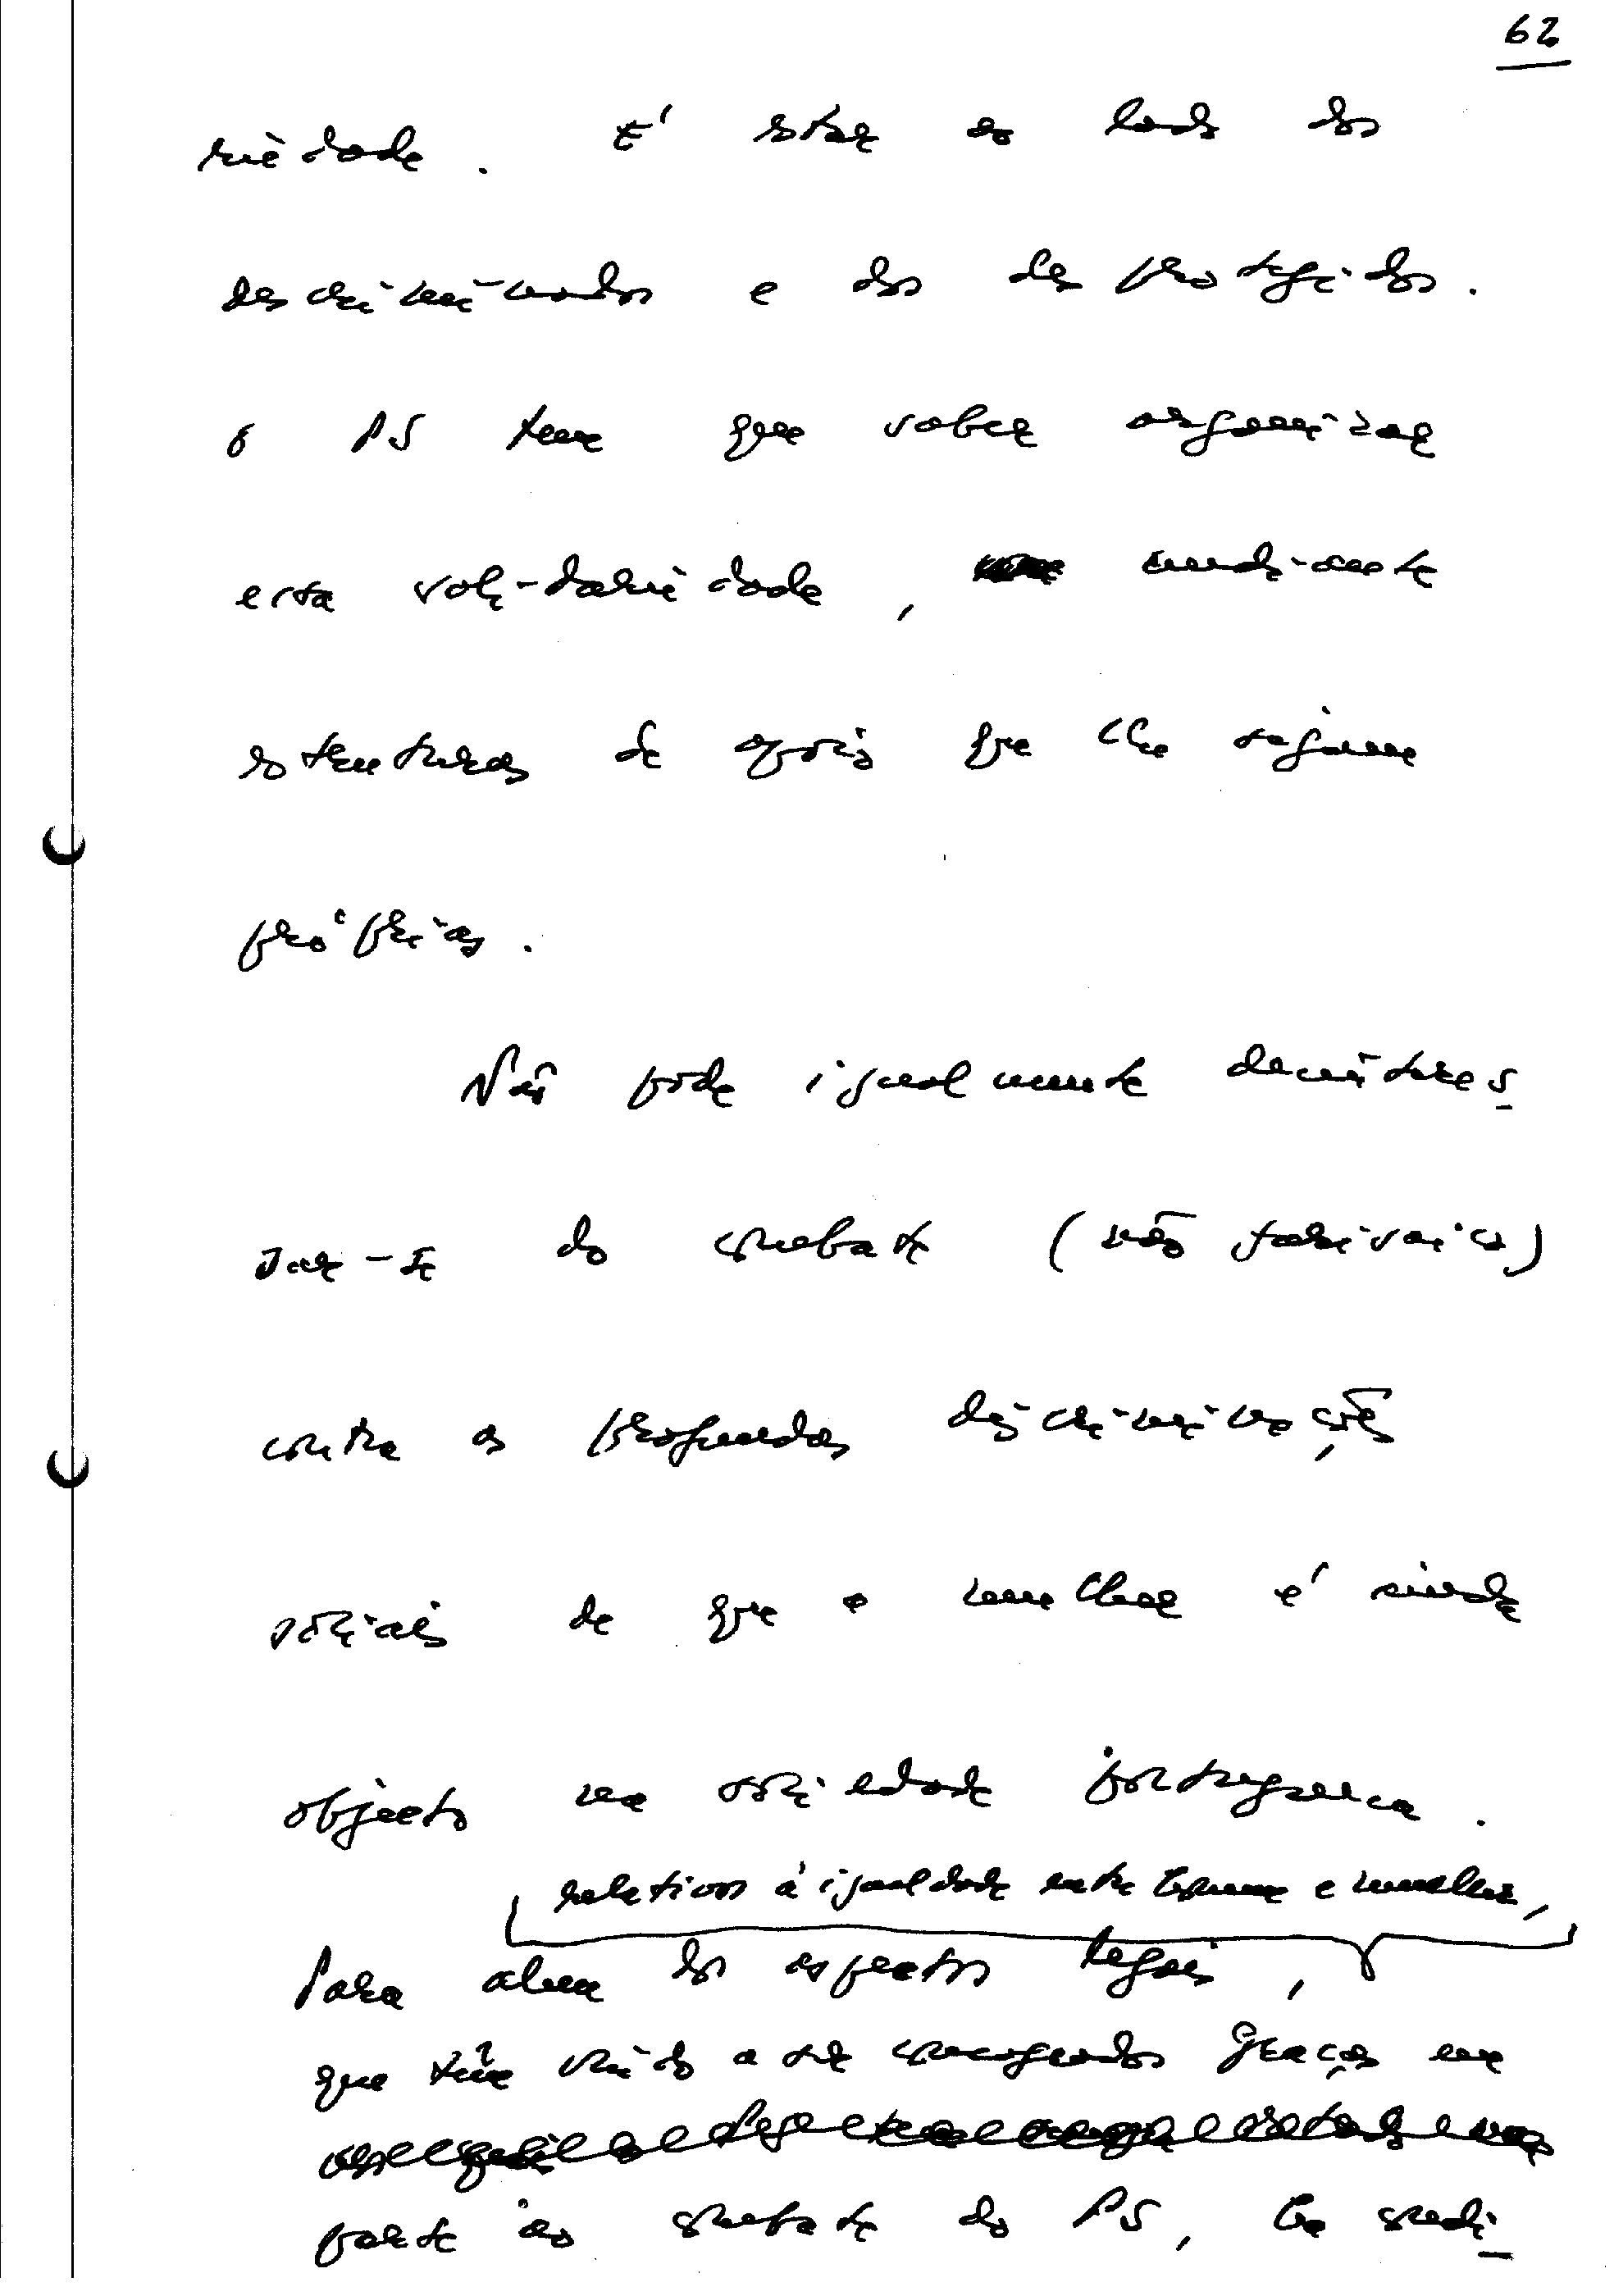 62
riedade. É estar ao lado dos
descriminados e dos desprotegidos.
O PS tem que saber organizar
essa solidariedade, mediante
estruturas de apoio que lhe sejam
próprias.
Não pode igualmente desinteres
sar-se do combate (não fácil)
contra as profundas discriminações
sociais de que a mulher é ainda
objecto na sociedade portuguesa.
relativos à igualdade entre homem e mulher,
Para além dos aspectos legais,
que têm vindo a ser consagrados graças em
parte ao combate do PS, há condi